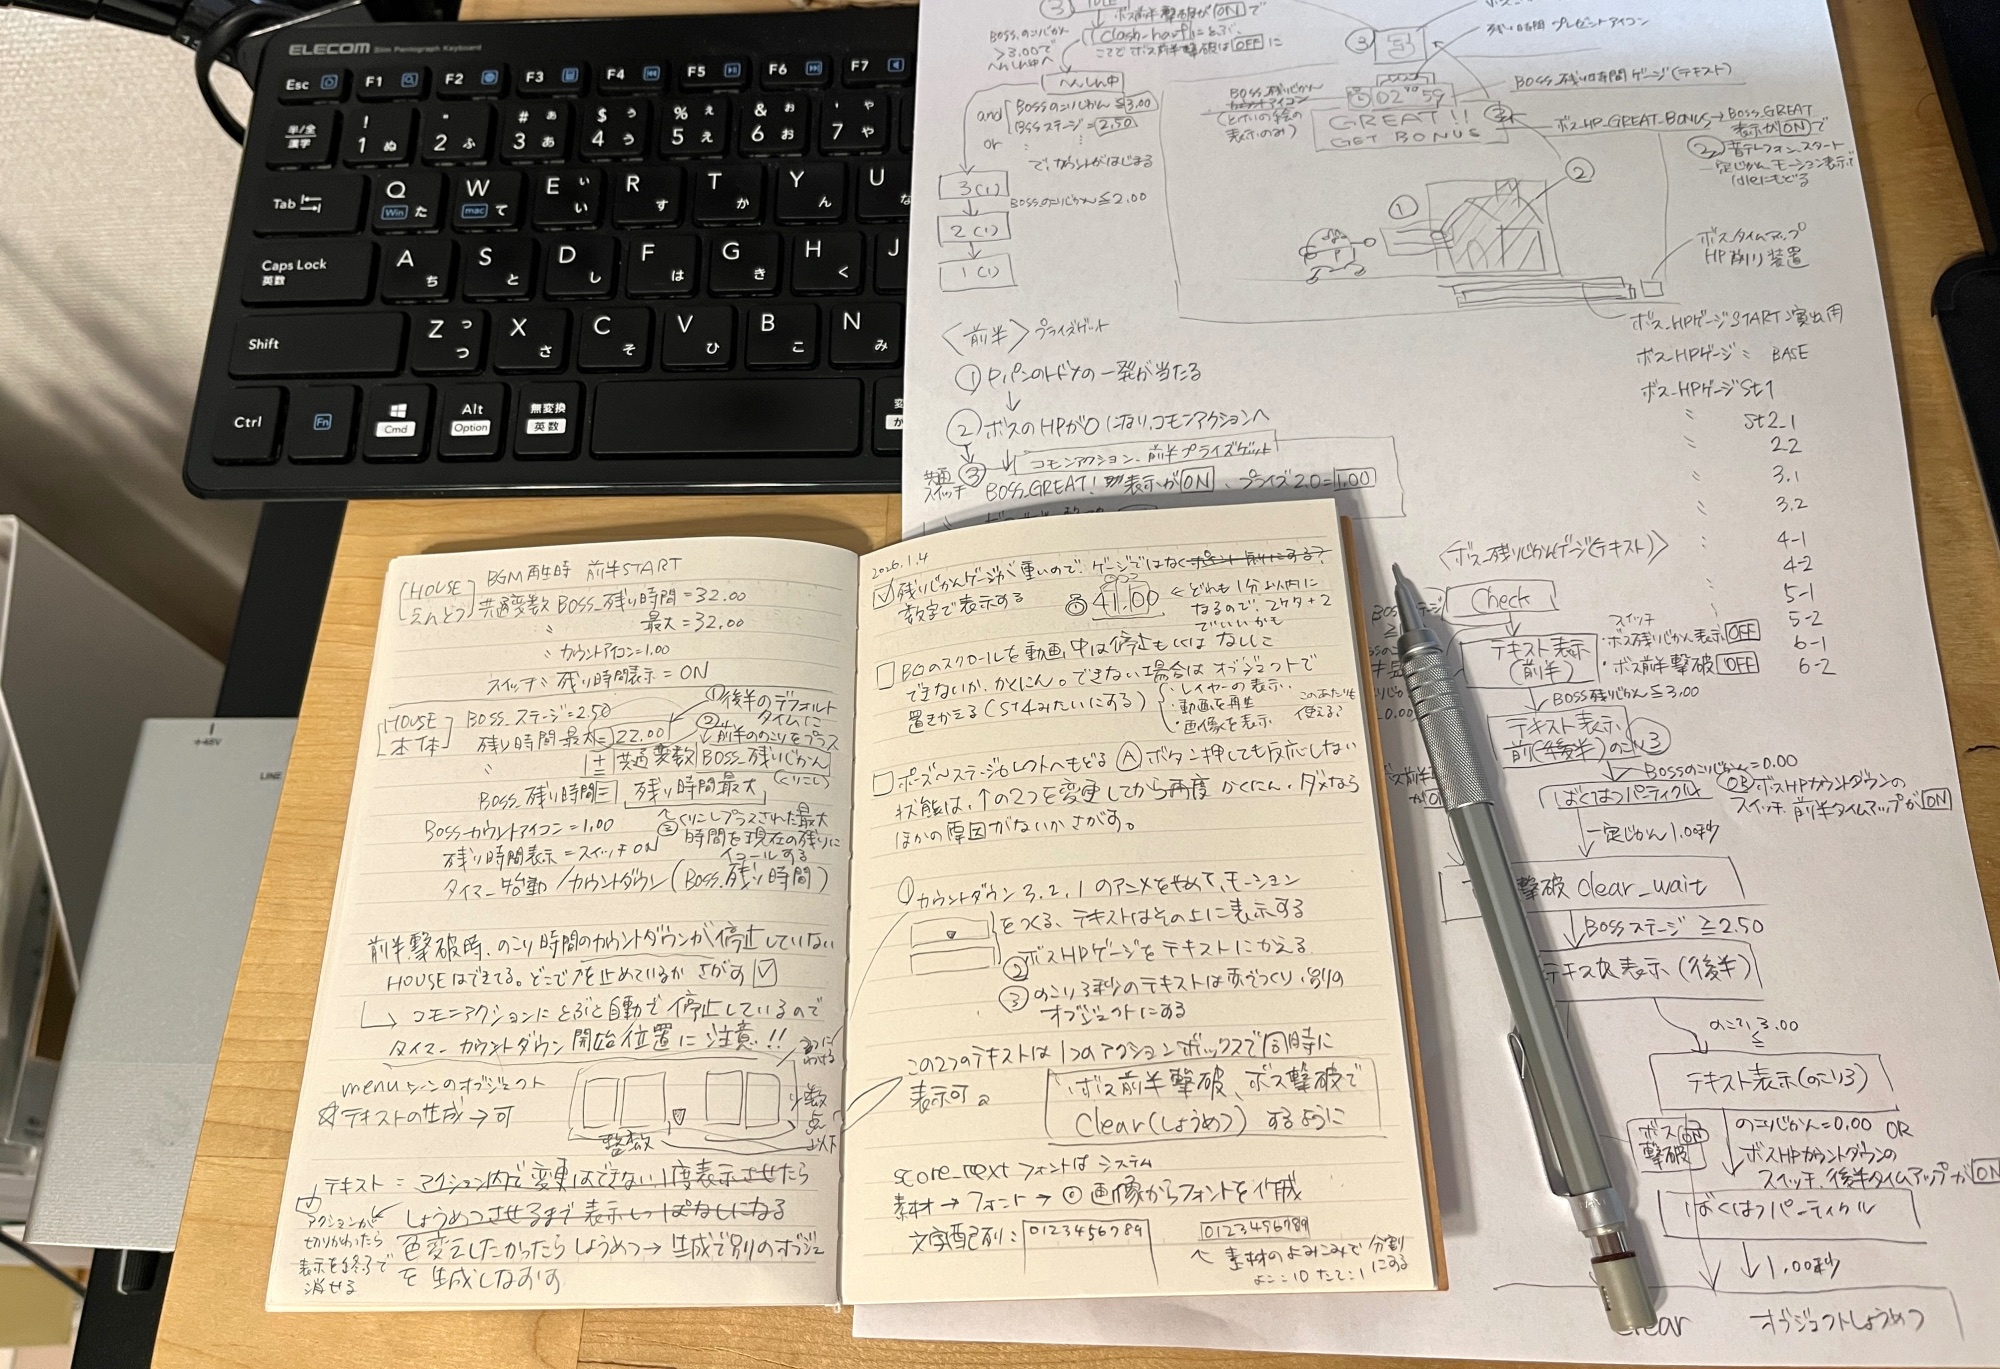 ELECOM Slim Pantograph Keyboard
Esc F1 F2 F3 F4 F5 F6 F7
半/全 漢字 ! 1 ぬ " 2 ふ # ぁ 3 あ $ ぅ 4 う % ぇ 5 え & ぉ 6 お ' ゃ 7 や
Tab Q Win た W mac て E ぃ い R す T か Y ん U な
Caps Lock 英数 A ち S と D し F は G き H く J
Shift Z っ つ X さ C そ V ひ B こ N み
Ctrl Fn Cmd Alt Option 無変換 英数
+48V
LINE
[HOUSE えんとつ] BGM再生時 前半START
共通変数 BOSS_残り時間=32.00
〃 最大=32.00
〃 カウントアイコン=1.00
スイッチ〃 残り時間表示=ON
[HOUSE 本体] BOSS_ステージ=2.50
残り時間最大=22.00
①後半のデフォルトタイムに
②前半のこりをプラス
+ 共通変数 BOSS_残りじかん
(くりこし)
BOSS_残り時間=残り時間最大
BOSS_カウントアイコン=1.00
③くりこしプラスされた最大
時間を現在の残りに
イコールする
残り時間表示=スイッチON
タイマー始動/カウントダウン(BOSS_残り時間)
前半撃破時、のこり時間のカウントダウンが停止していない
HOUSEはできてる。どこで を止めているか さがす ☑
↳ コモンアクションにとぶと自動で停止しているので
タイマーカウントダウン開始位置に注意!!
menuシーンのオブジェクト
☆テキストの生成→可
整数
小数点以下
テキスト=アクション内で変更はできない1度表示させたら
しょうめつさせるまで表示しっぱなしになる
アクションが
切りかわったら
表示を終了で
消せる
色変えしたかったらしょうめつ→生成で別のオブジェ
を生成しなおす
2026.1.4
☑ 残りじかんゲージが重いので、ゲージではなくポイント制にする?
数字で表示する
41.00
←どれも1分以内に
なるので、2ケタ+2
でいいかも
☐ BGのスクロールを動画中は停止もしくはなしに
できないか、かくにん。できない場合はオブジェクトで
置きかえる(St4みたいにする)
・レイヤーの表示
・動画を再生
・画像を表示
このあたりも
使える?
☐ ポーズ〜ステージセレクトへもどる Ⓐボタン押しても反応しない
状態は、↑の2つを変更してから再度かくにん。ダメなら
ほかの原因がないかさがす。
①カウントダウン3.2.1のアニメをやめて、モーション
をつくる、テキストはその上に表示する
②ボスHPゲージをテキストにかえる
③のこり3秒のテキストは赤でつくり、別の
オブジェクトにする
この2つのテキストは1つのアクションボックスで同時に
表示可。
ボス前半撃破、ボス撃破で
Clear(しょうめつ)するように
score_text フォントはシステム
素材→フォント→ⓒ画像からフォントを作成
文字配列: 0123456789
0123456789
↖素材のよみこみで分割
よこ:10 たて:1にする
③ IDLE
ボス前半撃破がONで
clash-halfにとぶ。
ここでボス前半撃破はOFFに
BOSSのこりじかん
>3.00で
へんしん中へ
へんしん中
and BOSSのこりじかん≦3.00
BOSSステージ=2.50
or
で、カウントがはじまる
3(1)
BOSSのこりじかん≦2.00
2(1)
1(1)
残り時間 プレゼントアイコン
③
BOSS_残り時間ゲージ(テキスト)
BOSS_残りじかん
カウントアイコン
(とけいの絵の
表示のみ)
02"59
GREAT!!
GET BONUS
ボスHP_GREAT_BONUS→BOSS_GREAT
表示がONで
定じかんモーション表示で
idleにもどる
①
②
ボスタイムアップ
HP削り装置
ボスHPゲージSTART演出用
ボスHPゲージ BASE
ボスHPゲージ St1
〃 St2_1
〃 2.2
〃 3.1
〃 3.2
〃 4-1
4-2
5-1
5-2
6-1
6-2
〈前半〉プライズゲット
①Pパンのトドメの一発が当たる
↓
②ボスのHPが0になり、コモンアクションへ
③ コモンアクション、前半プライズゲット
共通スイッチ BOSS_GREAT!表示がON、プライズ2.0=1.00
〈ボス_残りじかんゲージ(テキスト)〉
Check
テキスト表示
(前半)
スイッチ
・ボス残りじかん表示OFF
・ボス前半撃破OFF
BOSS残りじかん≦3.00
テキスト表示
前(後半)のこり3
BOSSのこりじかん=0.00
ORボスHPカウントダウンの
スイッチ、前半タイムアップがON
ばくはつパーティクル
一定じかん1.00秒
撃破 clear_wait
BOSSステージ≧2.50
テキスト表示(後半)
のこり3.00
≦
テキスト表示(のこり3)
ボス撃破
ON
のこりじかん=0.00 OR
ボスHPカウントダウンの
スイッチ、後半タイムアップがON
ばくはつパーティクル
↓1.00秒
clear オブジェクトしょうめつ